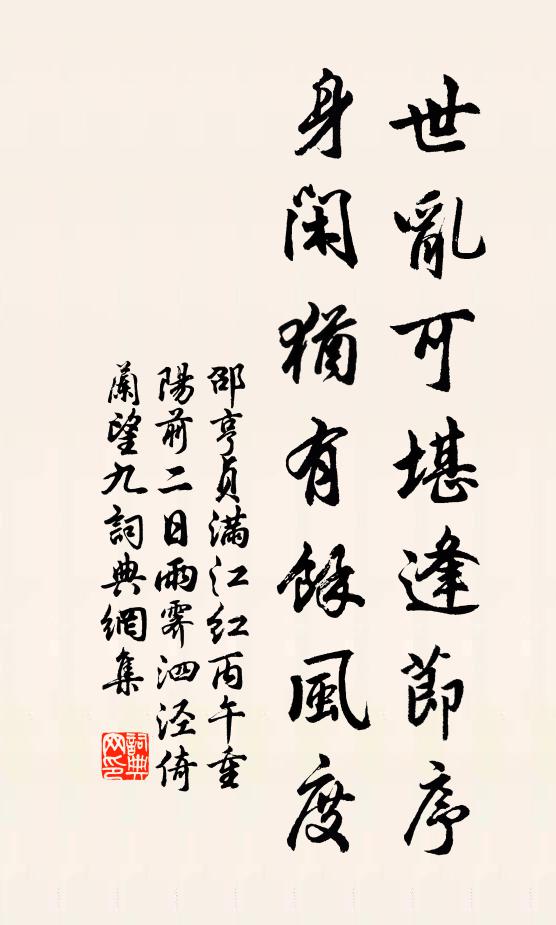 世亂可堪逢節序
身閑猶有餘風度
邵亨貞滿江紅丙午重
陽前二日雨霽泗涇倚
蘭望九詞典網集
詞典
网印